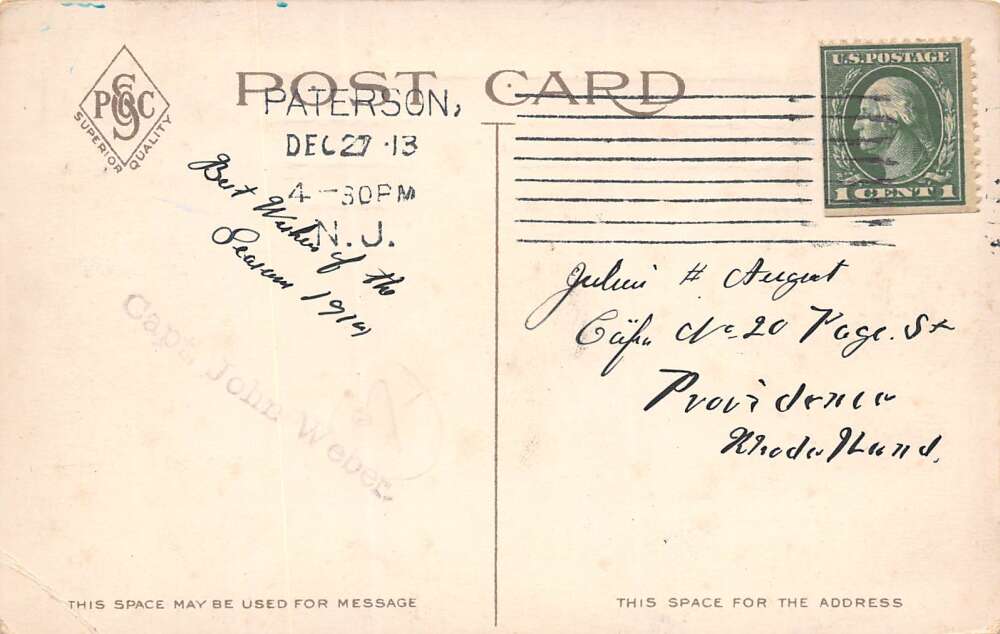 POST CARD
PGSC
SUPERIOR QUALITY
U.S. POSTAGE
1 CENT 1
PATERSON,
DEC 27 · 13
4 - 30 PM
N.J.
Best Wishes of the
Season
Capt. John Weber.
August
No 20 Page. St
Providence
THIS SPACE MAY BE USED FOR MESSAGE
THIS SPACE FOR THE ADDRESS